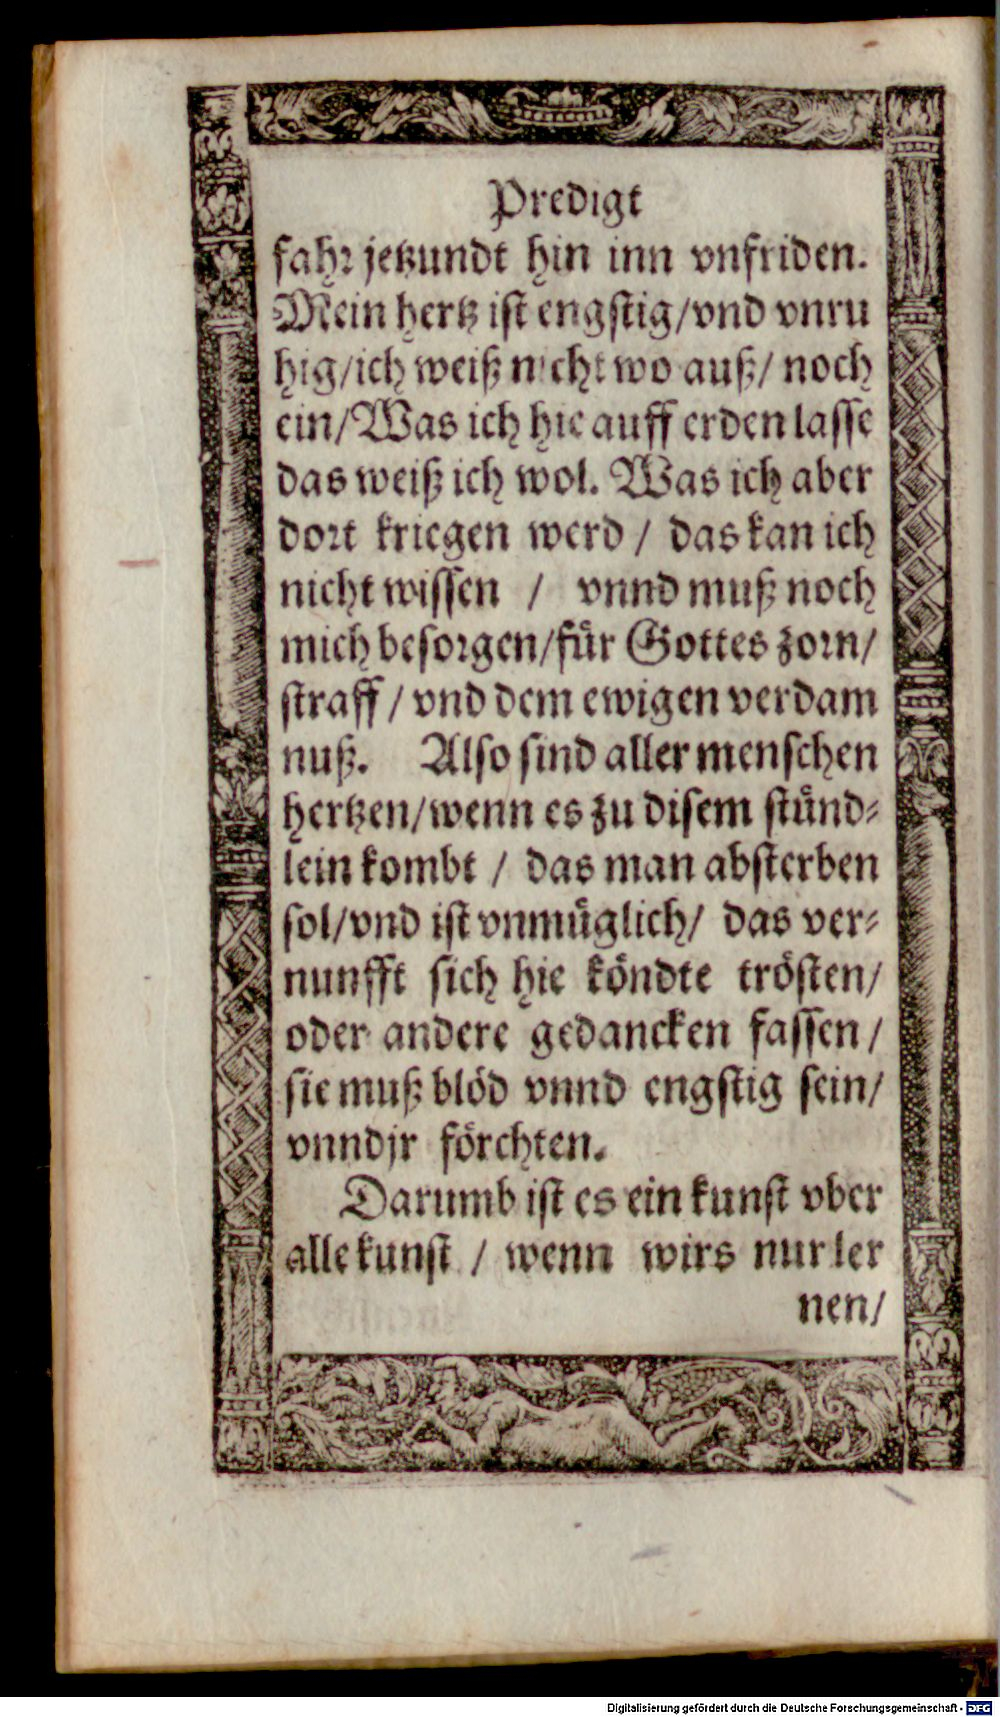 Predigt
fahr jetzundt hin inn vnfriden.
Mein hertz ist engstig/vnd vnru
hig/ich weiß nicht wo auß/ noch
ein/Was ich hie auff erden lasse
das weiß ich wol. Was ich aber
dort kriegen werd / das kan ich
nicht wissen / vnnd muß noch
mich besorgen/für Gottes zorn/
straff / vnd dem ewigen verdam
nuß. Also sind aller menschen
hertzen/wenn es zu disem stünd⸗
lein kombt / das man absterben
sol/vnd ist vnmüglich/ das ver⸗
nunfft sich hie köndte trösten/
oder andere gedancken fassen/
sie muß blöd vnnd engstig sein/
vnndjr förchten.
Darumb ist es ein kunst vber
alle kunst / wenn wirs nur ler
nen/
Digitalisierung gefördert durch die Deutsche Forschungsgemeinschaft - DFG